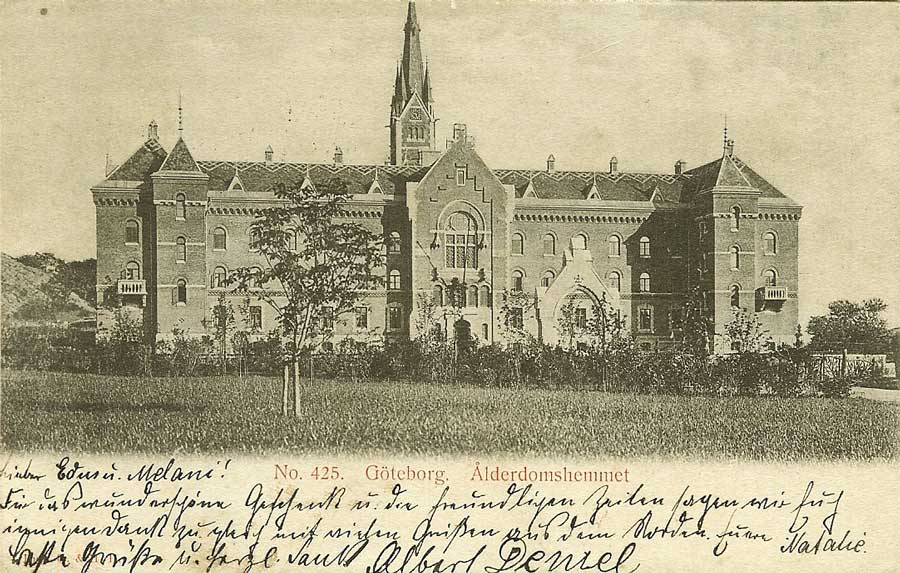 Lieber Edu u. Melani!
No. 425. Göteborg. Ålderdomshemmet
Für das wunderschöne Geschenk u. die freundlichen Zeilen sagen wir Euch
innigen Dank zugleich mit vielen Grüßen aus dem Norden. Euere Natalie.
Beste Grüße u. herzl. Dank Albert